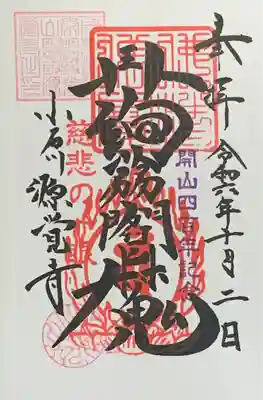 奉拝
令和六年十月二日
開山四百年記念
蒟蒻閻魔
慈悲の眼
小石川 源覚寺